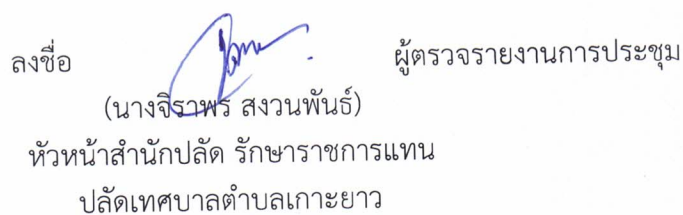 ลงชื่อ ผู้ตรวจรายงานการประชุม
(นางจิราพร สงวนพันธ์)
หัวหน้าสำนักปลัด รักษาราชการแทน
ปลัดเทศบาลตำบลเกาะยาว